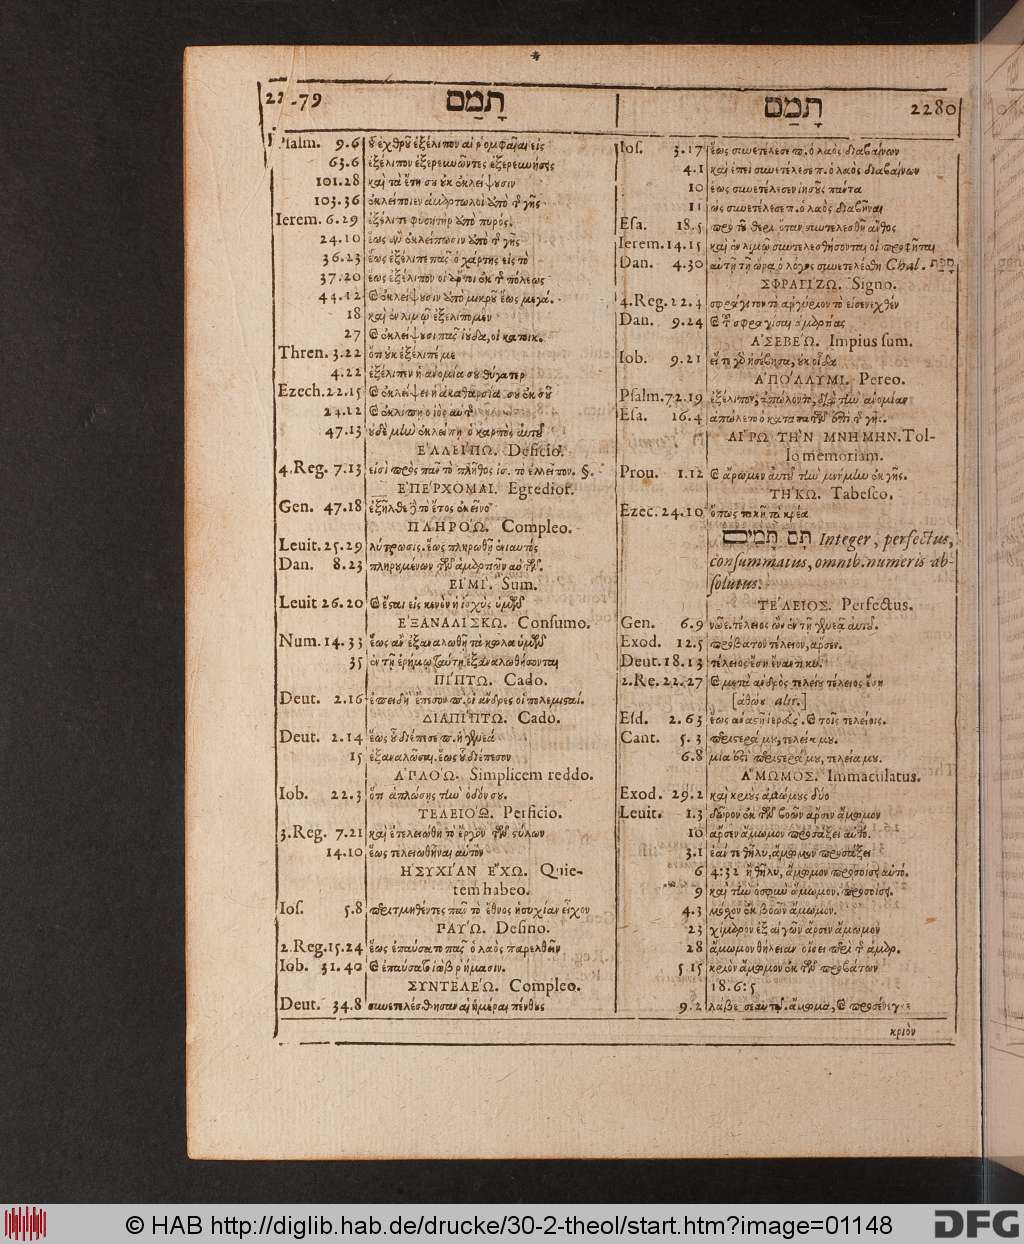 2279 תָמַם
Psalm. 9.6 ὁ ἐχθροῦ ἐξέλιπον αἱ ῥομφαῖαι εἰς
63.6 ἐξέλιπον ἐξερευνῶντες ἐξερευνήσεις
101.28 καὶ τὰ ἔτη σου οὐκ ἐκλείψουσιν
103.36 ἐκλείποιεν ἁμαρτωλοὶ ἀπὸ τῆς γῆς
Ierem. 6.29 ἐξέλιπε φυσητὴρ ἀπὸ πυρός.
24.10 ἕως ἂν ἐκλείπωσιν ἀπὸ τῆς γῆς
36.23 ἕως ἐξέλιπε πᾶς ὁ χάρτης εἰς τὸ
37.20 ἕως ἐξέλιπον οἱ ἄρτοι ἐκ τῆς πόλεως
44.12 καὶ ἐκλείψουσιν ἀπὸ μικροῦ ἕως μεγά.
18 καὶ ἐν λιμῷ ἐξελίπομεν
27 καὶ ἐκλείψουσι πᾶς ἰούδα, οἱ κατοικ.
Thren. 3.22 ὅτι οὐκ ἐξέλιπέ με
4.22 ἐξέλιπεν ἡ ἀνομία σου θύγατερ
Ezech. 22.15 καὶ ἐκλείψει ἡ ἀκαθαρσία σου ἐκ σοῦ
24.12 καὶ ἐκλίπῃ ὁ ἰὸς αὐτῆς
47.13 οὐδὲ μὴν ἐκλείπῃ ὁ καρπὸς αὐτοῦ
ΕΛΛΕΙΠΩ. Deficio.
4.Reg. 7.13 εἰσὶ πρὸς πᾶν τὸ πλῆθος ἰσ. τὸ ἐλλεῖπον. §.
ἘΠΕΡΧΟΜΑΙ. Egredior.
Gen. 47.18 ἐξῆλθε δὲ τὸ ἔτος ἐκεῖνο
ΠΛΗΡΟΏ. Compleo.
Leuit. 25.29 λύτρωσις. ἕως πληρωθῇ ἐνιαυτός
Dan. 8.23 πληρουμένων τῶν ἁμαρτιῶν αὐτῶν.
ΕΙΜΙ. Sum.
Leuit 26.20 καὶ ἔσται εἰς κενὸν ἡ ἰσχὺς ὑμῶν
ἘΞΑΝΑΛΙΣΚΩ. Consumo.
Num. 14.33 ἕως ἂν ἐξαναλωθῇ τὰ κῶλα ὑμῶν
35 ἐν τῇ ἐρήμῳ ταύτῃ ἐξαναλωθήσονται
ΠΙΠΤΩ. Cado.
Deut. 2.16 ἐπειδὴ ἔπεσον π. οἱ ἄνδρες οἱ πολεμισταί.
ΔΙΑΠΙΠΤΩ. Cado.
Deut. 2.14 ἕως οὗ διέπεσε π. ἡ γενεά
15 ἐξαναλῶσαι. ἕως οὗ διέπεσον
ἈΠΛΟΏ. Simplicem reddo.
Iob. 22.3 ὅτι ἁπλώσῃς τὴν ὁδόν σου.
ΤΕΛΕΙΟΏ. Perficio.
3.Reg. 7.21 καὶ ἐτελειώθη τὸ ἔργον τῶν στύλων
14.10 ἕως τελειωθῆναι αὐτόν
ΗΣΥΧΙΑΝ ΕΧΩ. Quie-
tem habeo.
Ios. 5.8 περιτμηθέντες πᾶν τὸ ἔθνος ἡσυχίαν εἶχον
ΠΑΥΏ. Desino.
2.Reg. 15.24 ἕως ἐπαύσατο πᾶς ὁ λαὸς παρελθεῖν
Iob. 31.40 καὶ ἐπαύσατο ἰὼβ ῥήμασιν.
ΣΥΝΤΕΛΕΏ. Compleo.
Deut. 34.8 συνετελέσθησαν αἱ ἡμέραι πένθους
תָמַם 2280
Ios. 3.17 ἕως συνετέλεσε π. ὁ λαὸς διαβαίνων
4.1 καὶ ἐπεὶ συνετέλεσε π. ὁ λαὸς διαβαίνων
10 ἕως συνετέλεσεν ἰησοῦς πάντα
11 ὡς συνετέλεσε π. ὁ λαὸς διαβῆναι
Esa. 18.5 πρὸ τοῦ θερι. ὅταν συντελεσθῇ ἄνθος
Ierem. 14.15 καὶ ἐν λιμῷ συντελεσθήσονται οἱ προφῆται
Dan. 4.30 αὐτῇ τῇ ὥρᾳ ὁ λόγος συνετελέσθη Chal.
ΣΦΡΑΓΙΖΩ. Signo.
4.Reg. 22.4 σφράγισον τὸ ἀργύριον τὸ εἰσενεχθέν
Dan. 9.24 καὶ τοῦ σφραγίσαι ἁμαρτίας
ἈΣΕΒΕΏ. Impius sum.
Iob. 9.21 εἴτι γὰρ ἠσέβησα, οὐκ οἶδα
ἈΠΟΛΛΥΜΙ. Pereo.
Psalm. 72.19 ἐξέλιπον, ἀπώλοντο, διὰ τὴν ἀνομίαν
Esa. 16.4 ἀπώλετο ὁ καταπατῶν ἐπὶ τῆς γῆς.
ΑΙΡΩ ΤΗΝ ΜΝΗΜΗΝ. Tol-
lo memoriam.
Prou. 1.12 καὶ ἄρωμεν αὐτοῦ τὴν μνήμην ἐκ γῆς.
ΤΗΚΩ. Tabesco.
Ezec. 24.10 ὅπως τακῇ τὰ κρέα
תָם תָמִים Integer, perfectus,
consummatus, omnib. numeris ab-
solutus.
ΤΕΛΕΙΟΣ. Perfectus.
Gen. 6.9 νῶε. τέλειος ὢν ἐν τῇ γενεᾷ αὐτοῦ.
Exod. 12.5 πρόβατον τέλειον, ἄρσεν.
Deut. 18.13 τέλειος ἔσῃ ἔναντι κυ.
2.Re. 22.27 καὶ μετὰ ἀνδρὸς τελείου τέλειος ἔσῃ
[ἀθώου aliτ.]
Esd. 2.63 ἕως ἀναστῇ ἱερεύς. καὶ τοῖς τελείοις.
Cant. 5.3 περιστερά μου, τελεία μου.
6.8 μία ἐστὶ περιστερά μου, τελεία μου.
ἌΜΩΜΟΣ. Immaculatus.
Exod. 29.2 καὶ κριοὺς ἀμώμους δύο
Leuit. 1.3 δῶρον ἐκ τῶν βοῶν ἄρσεν ἄμωμον
10 ἄρσεν ἄμωμον προσάξει αὐτό.
3.1 ἐάν τε θῆλυ, ἄμωμον προσάξει
6 4:32 ἢ θῆλυ, ἄμωμον προσοίσει αὐτό.
9 καὶ τὴν ὀσφὺν ἄμωμον. προσοίσει.
4.3 μόσχον ἐκ βοῶν ἄμωμον.
23 χίμαρον ἐξ αἰγῶν ἄρσεν ἄμωμον
28 ἄμωμον θήλειαν οἴσει περὶ τῆς ἁμαρ.
5.15 κριὸν ἄμωμον ἐκ τῶν προβάτων
18.6:5
9.2 λάβε σεαυτῷ. ἄμωμα, καὶ προσένεγκε
κριὸν
© HAB http://diglib.hab.de/drucke/30-2-theol/start.htm?image=01148
DFG